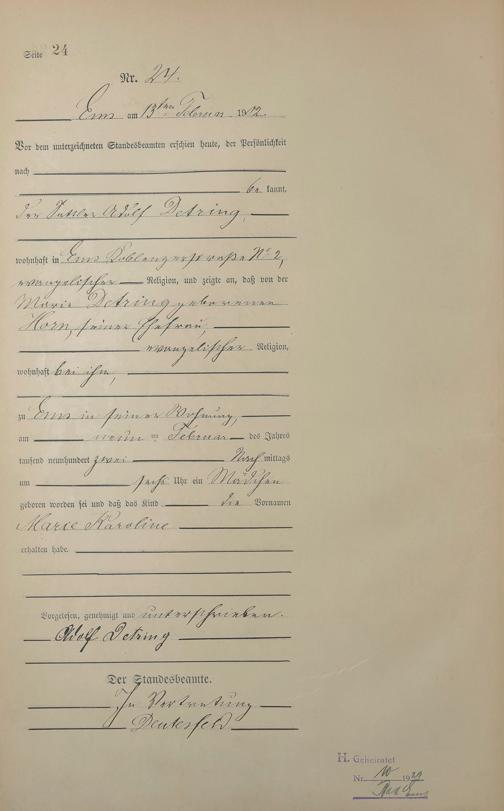 Seite 24
Nr. 24.
Ems am 13ten Februar 1902.
Vor dem unterzeichneten Standesbeamten erschien heute, der Persönlichkeit
nach
be kannt,
der Sattler Adolf Detring,
wohnhaft in Ems Koblenzerstraße No 2,
evangelischer Religion, und zeigte an, daß von der
Marie Detring geborenen
Horn, seiner Ehefrau,
evangelischer Religion,
wohnhaft bei ihm,
zu Ems in seiner Wohnung,
am neun ten Februar des Jahres
tausend neunhundert zwei Nach mittags
um sechs Uhr ein Mädchen
geboren worden sei und daß das Kind die Vornamen
Marie Karoline
erhalten habe.
Vorgelesen, genehmigt und unterschrieben.
Adolf Detring
Der Standesbeamte.
In Vertretung
H. Geheiratet
Nr. 10 1921
Bad Ems